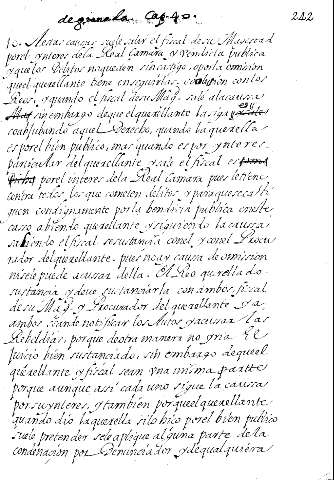 de granada. Cap. 40.
242
10. A estas causas suele salir el fiscal de su Magestad
por el ynteres de la Real Camara y vendicta publica
y que los Delitos no queden sin castigo, o por la omision
que el querellante tiene en seguirlas, colusion con los
Reos, y quando el fiscal de su Mag. sale a la causa
sin embargo de que el querellante la siga
coadjubando aquel Derecho, quando la querella
es por el bien publico, mas quando es por ynteres
particular del querellante y sale el fiscal es
por el interes de la Real Camara pues le tiene
contra todos los que cometen delitos, y para que se casti
guen condignamente por la bendicta publica en este
caso abiendo querellante, y siguiendo la causa
saliendo el fiscal se sustancia con el, y con el Procu
rador del querellante, pues no ay causa de omision
ni se le puede acusar della. El Reo querellado
sustancia y deve sustanciarla con ambos fiscal
de su Mag. y Procurador del querellante y a
ambos se an de notificar los Autos, y acusar las
Rebeldias, porque de otra manera no yria El
juicio bien sustanciado, sin embargo de que el
querellante y fiscal sean una misma parte
porque aunque assi cada uno sigue la causa
por su ynteres, y tambien porque el querellante
quando dio la querella silo hiço por el bien publico
suele pretender se le aplique alguna parte de la
condenaçion por Denunciador, y de qualquiera